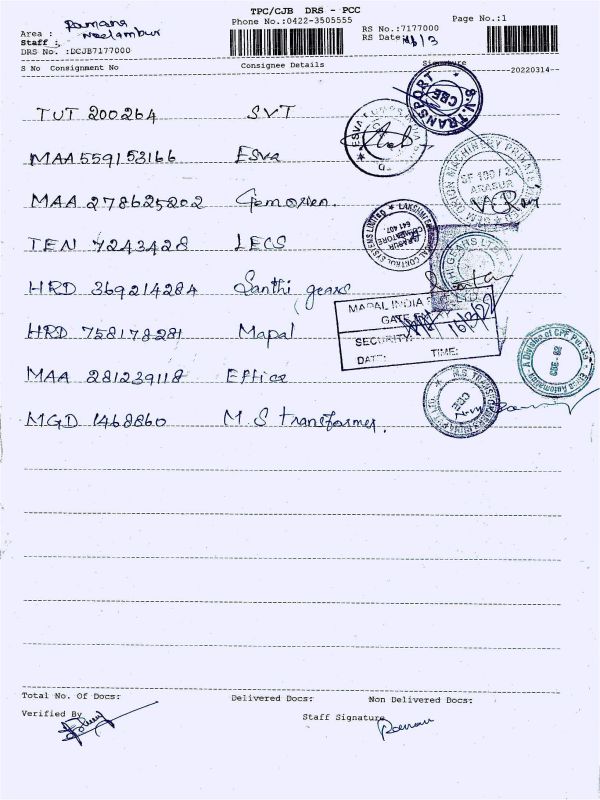 TPC/CJB DRS - PCC
Phone No.:0422-3505555
Page No.:1
Ramana
Area : Neelambur
Staff :
DRS No. :DCJB7177000
RS No.:7177000
RS Date: 16/3
S No Consignment No Consignee Details Signature
20220314
TUT 200264 SVT
S.V.TRANSPORT CBE
MAA 559153166 Esva
MAA 278625202 Gemorion
SF 100 / 2A
ARASUR
TEN 7243428 LECS
ARASUR
COIMBATORE
641 407
HRD 369214284 Santhi gears
HRD 758178281 Mapal
MAPAL INDIA
GATE
16/3/22
SECURITY:
DATE: TIME:
MAA 281239118 Effica
Effica Automation - A Division of CPF Pvt. Ltd.
MGD 1468860 M.S transformer.
CBE
Total No. Of Docs: Delivered Docs: Non Delivered Docs:
Verified By
Staff Signature
Raman